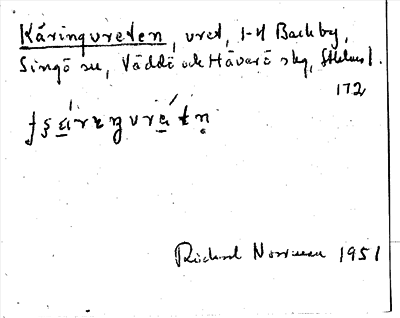 Käringvreten, vret, 1-4 Backby,
Singö sn, Väddö och Häverö skg, Sthlms l.
172
Rickard Norrman 1951